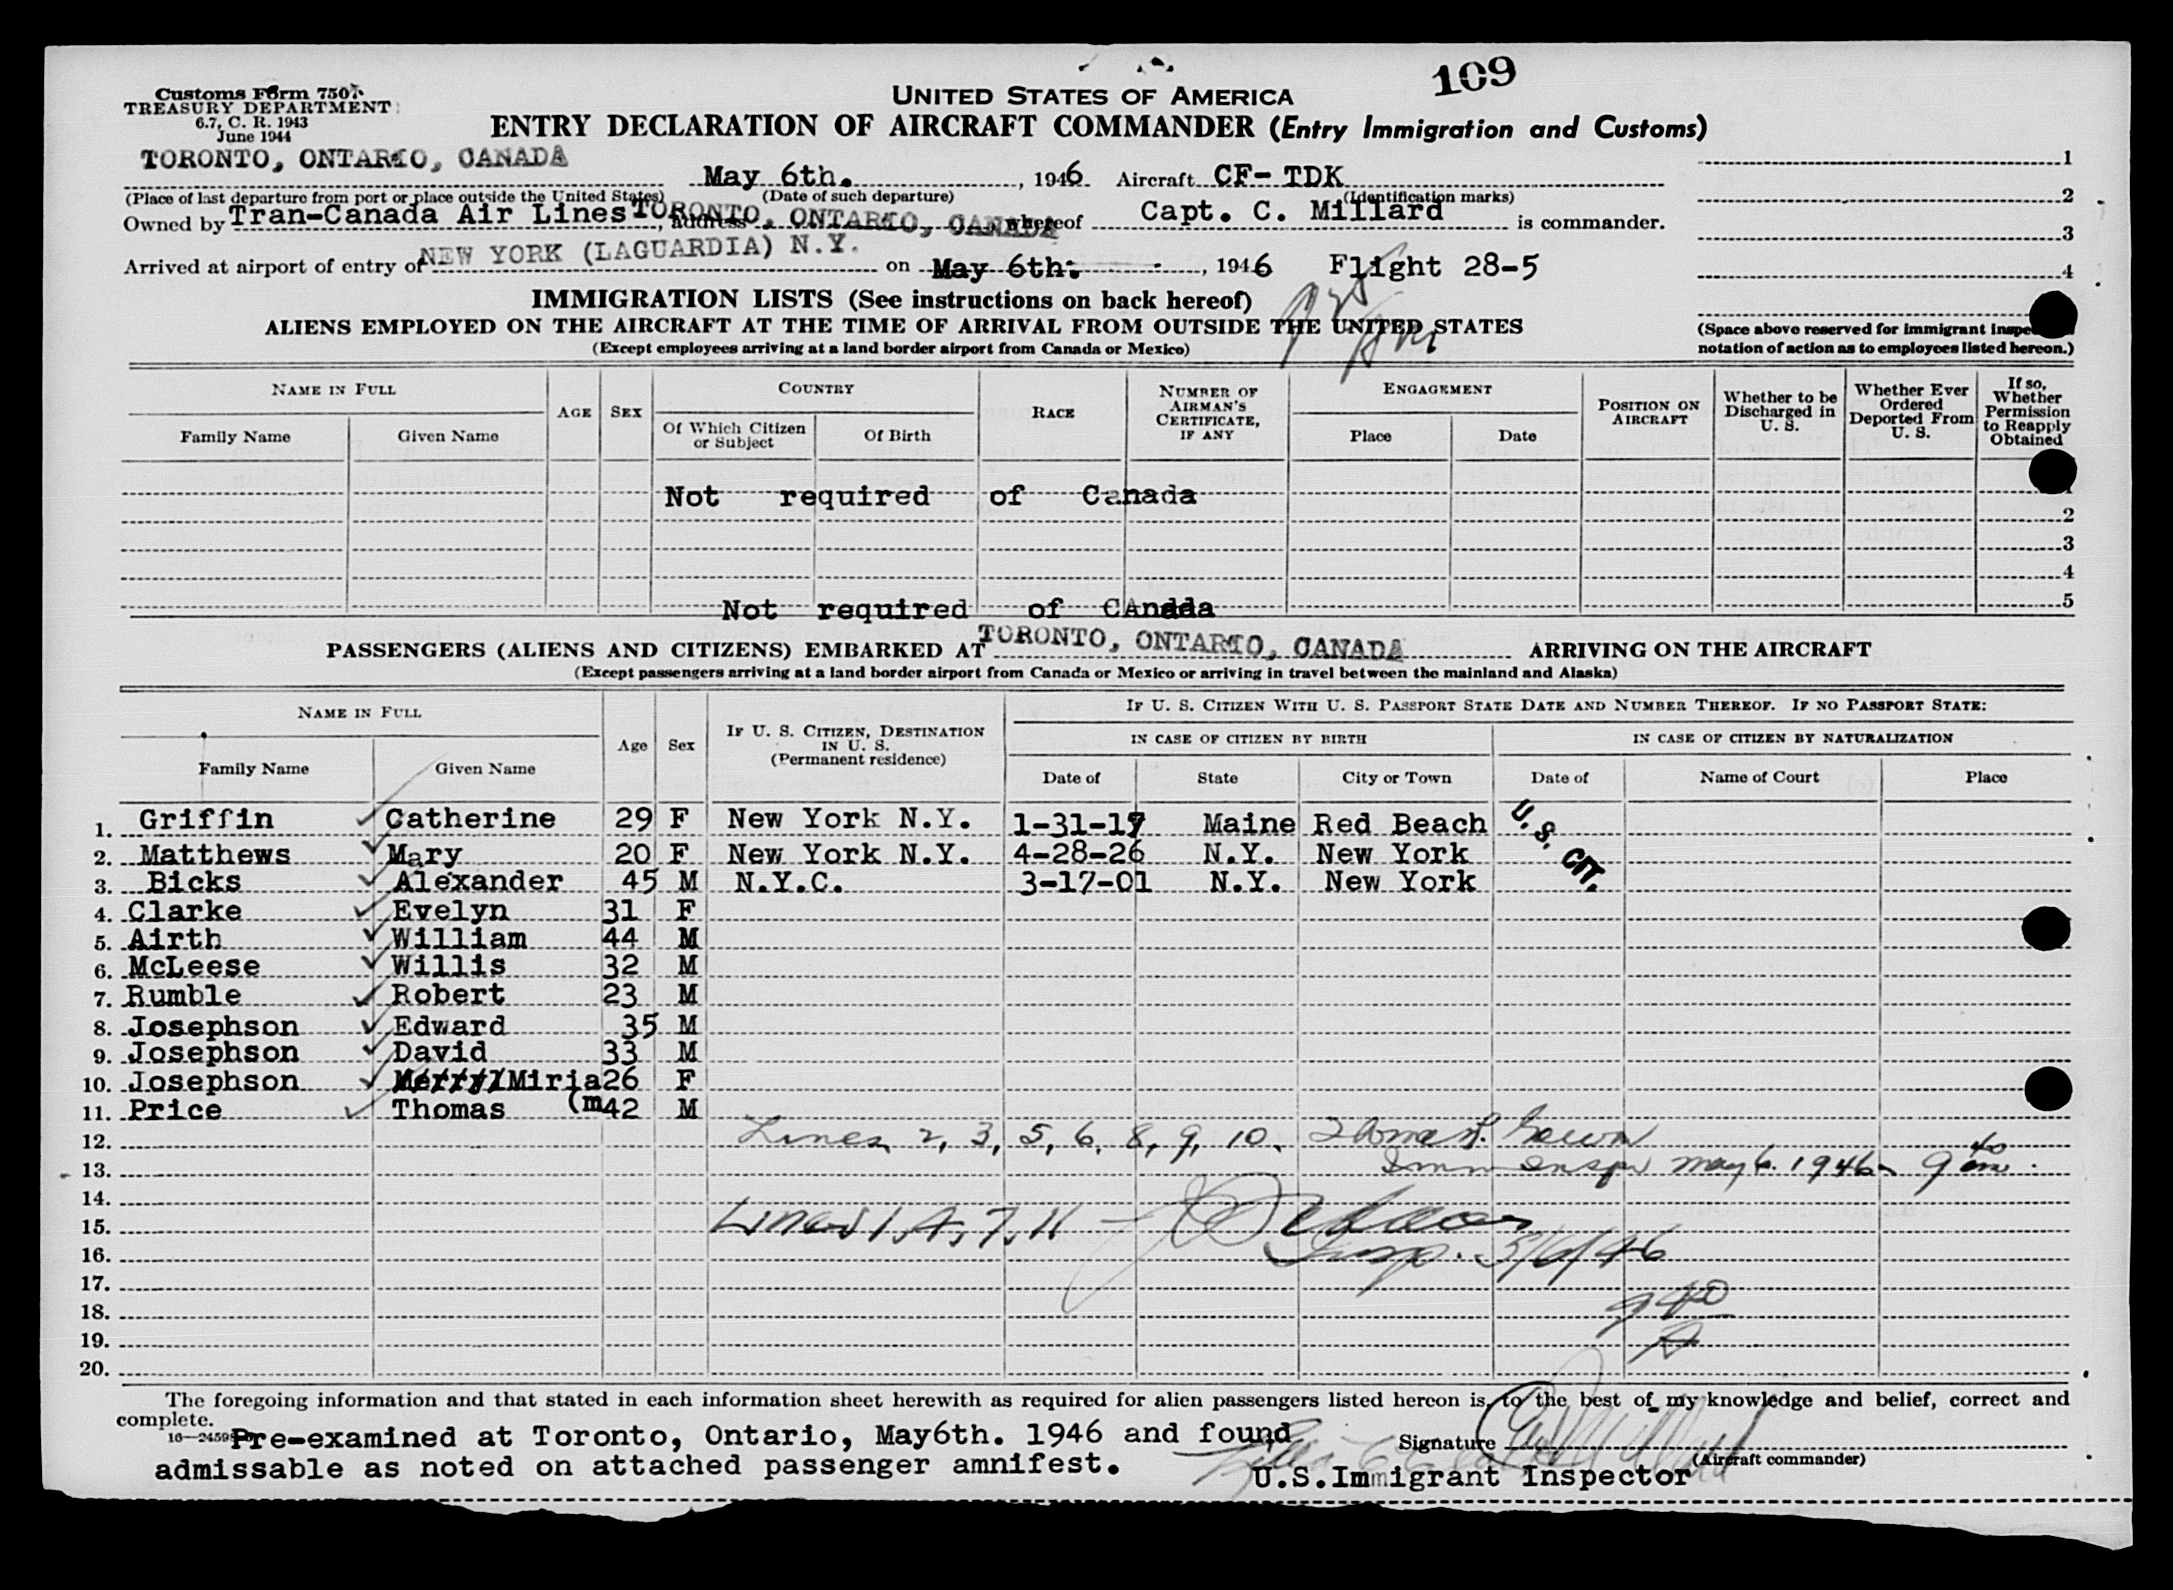 109
Customs Form 7507
TREASURY DEPARTMENT
6.7, C. R. 1943
June 1944
UNITED STATES OF AMERICA
ENTRY DECLARATION OF AIRCRAFT COMMANDER (Entry Immigration and Customs)
TORONTO, ONTARIO, CANADA May 6th. , 1946 Aircraft CF-TDK 1
(Place of last departure from port or place outside the United States) (Date of such departure) (Identification marks) 2
Owned by Tran-Canada Air Lines, address TORONTO, ONTARIO, CANADA whereof Capt. C. Millard is commander. 3
Arrived at airport of entry of NEW YORK (LAGUARDIA) N.Y. on May 6th. , 1946 Flight 28-5 4
IMMIGRATION LISTS (See instructions on back hereof)
ALIENS EMPLOYED ON THE AIRCRAFT AT THE TIME OF ARRIVAL FROM OUTSIDE THE UNITED STATES
(Except employees arriving at a land border airport from Canada or Mexico)
(Space above reserved for immigrant
notation of action as to employees listed hereon.)
NAME IN FULL AGE SEX COUNTRY RACE NUMBER OF AIRMAN'S CERTIFICATE, IF ANY ENGAGEMENT POSITION ON AIRCRAFT Whether to be Discharged in U. S. Whether Ever Ordered Deported From U. S. If so, Whether Permission to Reapply Obtained
Family Name Given Name Of Which Citizen or Subject Of Birth Place Date
Not required of Canada
2
3
4
Not required of CAnada 5
PASSENGERS (ALIENS AND CITIZENS) EMBARKED AT TORONTO, ONTARIO, CANADA ARRIVING ON THE AIRCRAFT
(Except passengers arriving at a land border airport from Canada or Mexico or arriving in travel between the mainland and Alaska)
NAME IN FULL Age Sex IF U. S. CITIZEN, DESTINATION IN U. S. (Permanent residence) IF U. S. CITIZEN WITH U. S. PASSPORT STATE DATE AND NUMBER THEREOF. IF NO PASSPORT STATE:
IN CASE OF CITIZEN BY BIRTH IN CASE OF CITIZEN BY NATURALIZATION
Family Name Given Name Date of State City or Town Date of Name of Court Place
1. Griffin Catherine 29 F New York N.Y. 1-31-17 Maine Red Beach U. S. CIT.
2. Matthews Mary 20 F New York N.Y. 4-28-26 N.Y. New York
3. Bicks Alexander 45 M N.Y.C. 3-17-01 N.Y. New York
4. Clarke Evelyn 31 F
5. Airth William 44 M
6. McLeese Willis 32 M
7. Rumble Robert 23 M
8. Josephson Edward 35 M
9. Josephson David 33 M
10. Josephson Miria 26 F
11. Price Thomas (m 42 M
12. Lines 2, 3, 5, 6, 8, 9, 10.
13. Imm Inspr May 6. 1946 - 9
14.
15. Lines 1, 4, 7, 11
16. Insp. 5/6/46
17.
18. 940
19. A
20.
The foregoing information and that stated in each information sheet herewith as required for alien passengers listed hereon is, to the best of my knowledge and belief, correct and
complete.
Pre-examined at Toronto, Ontario, May6th. 1946 and found
Signature
(Aircraft commander)
admissable as noted on attached passenger amnifest.
U.S.Immigrant Inspector